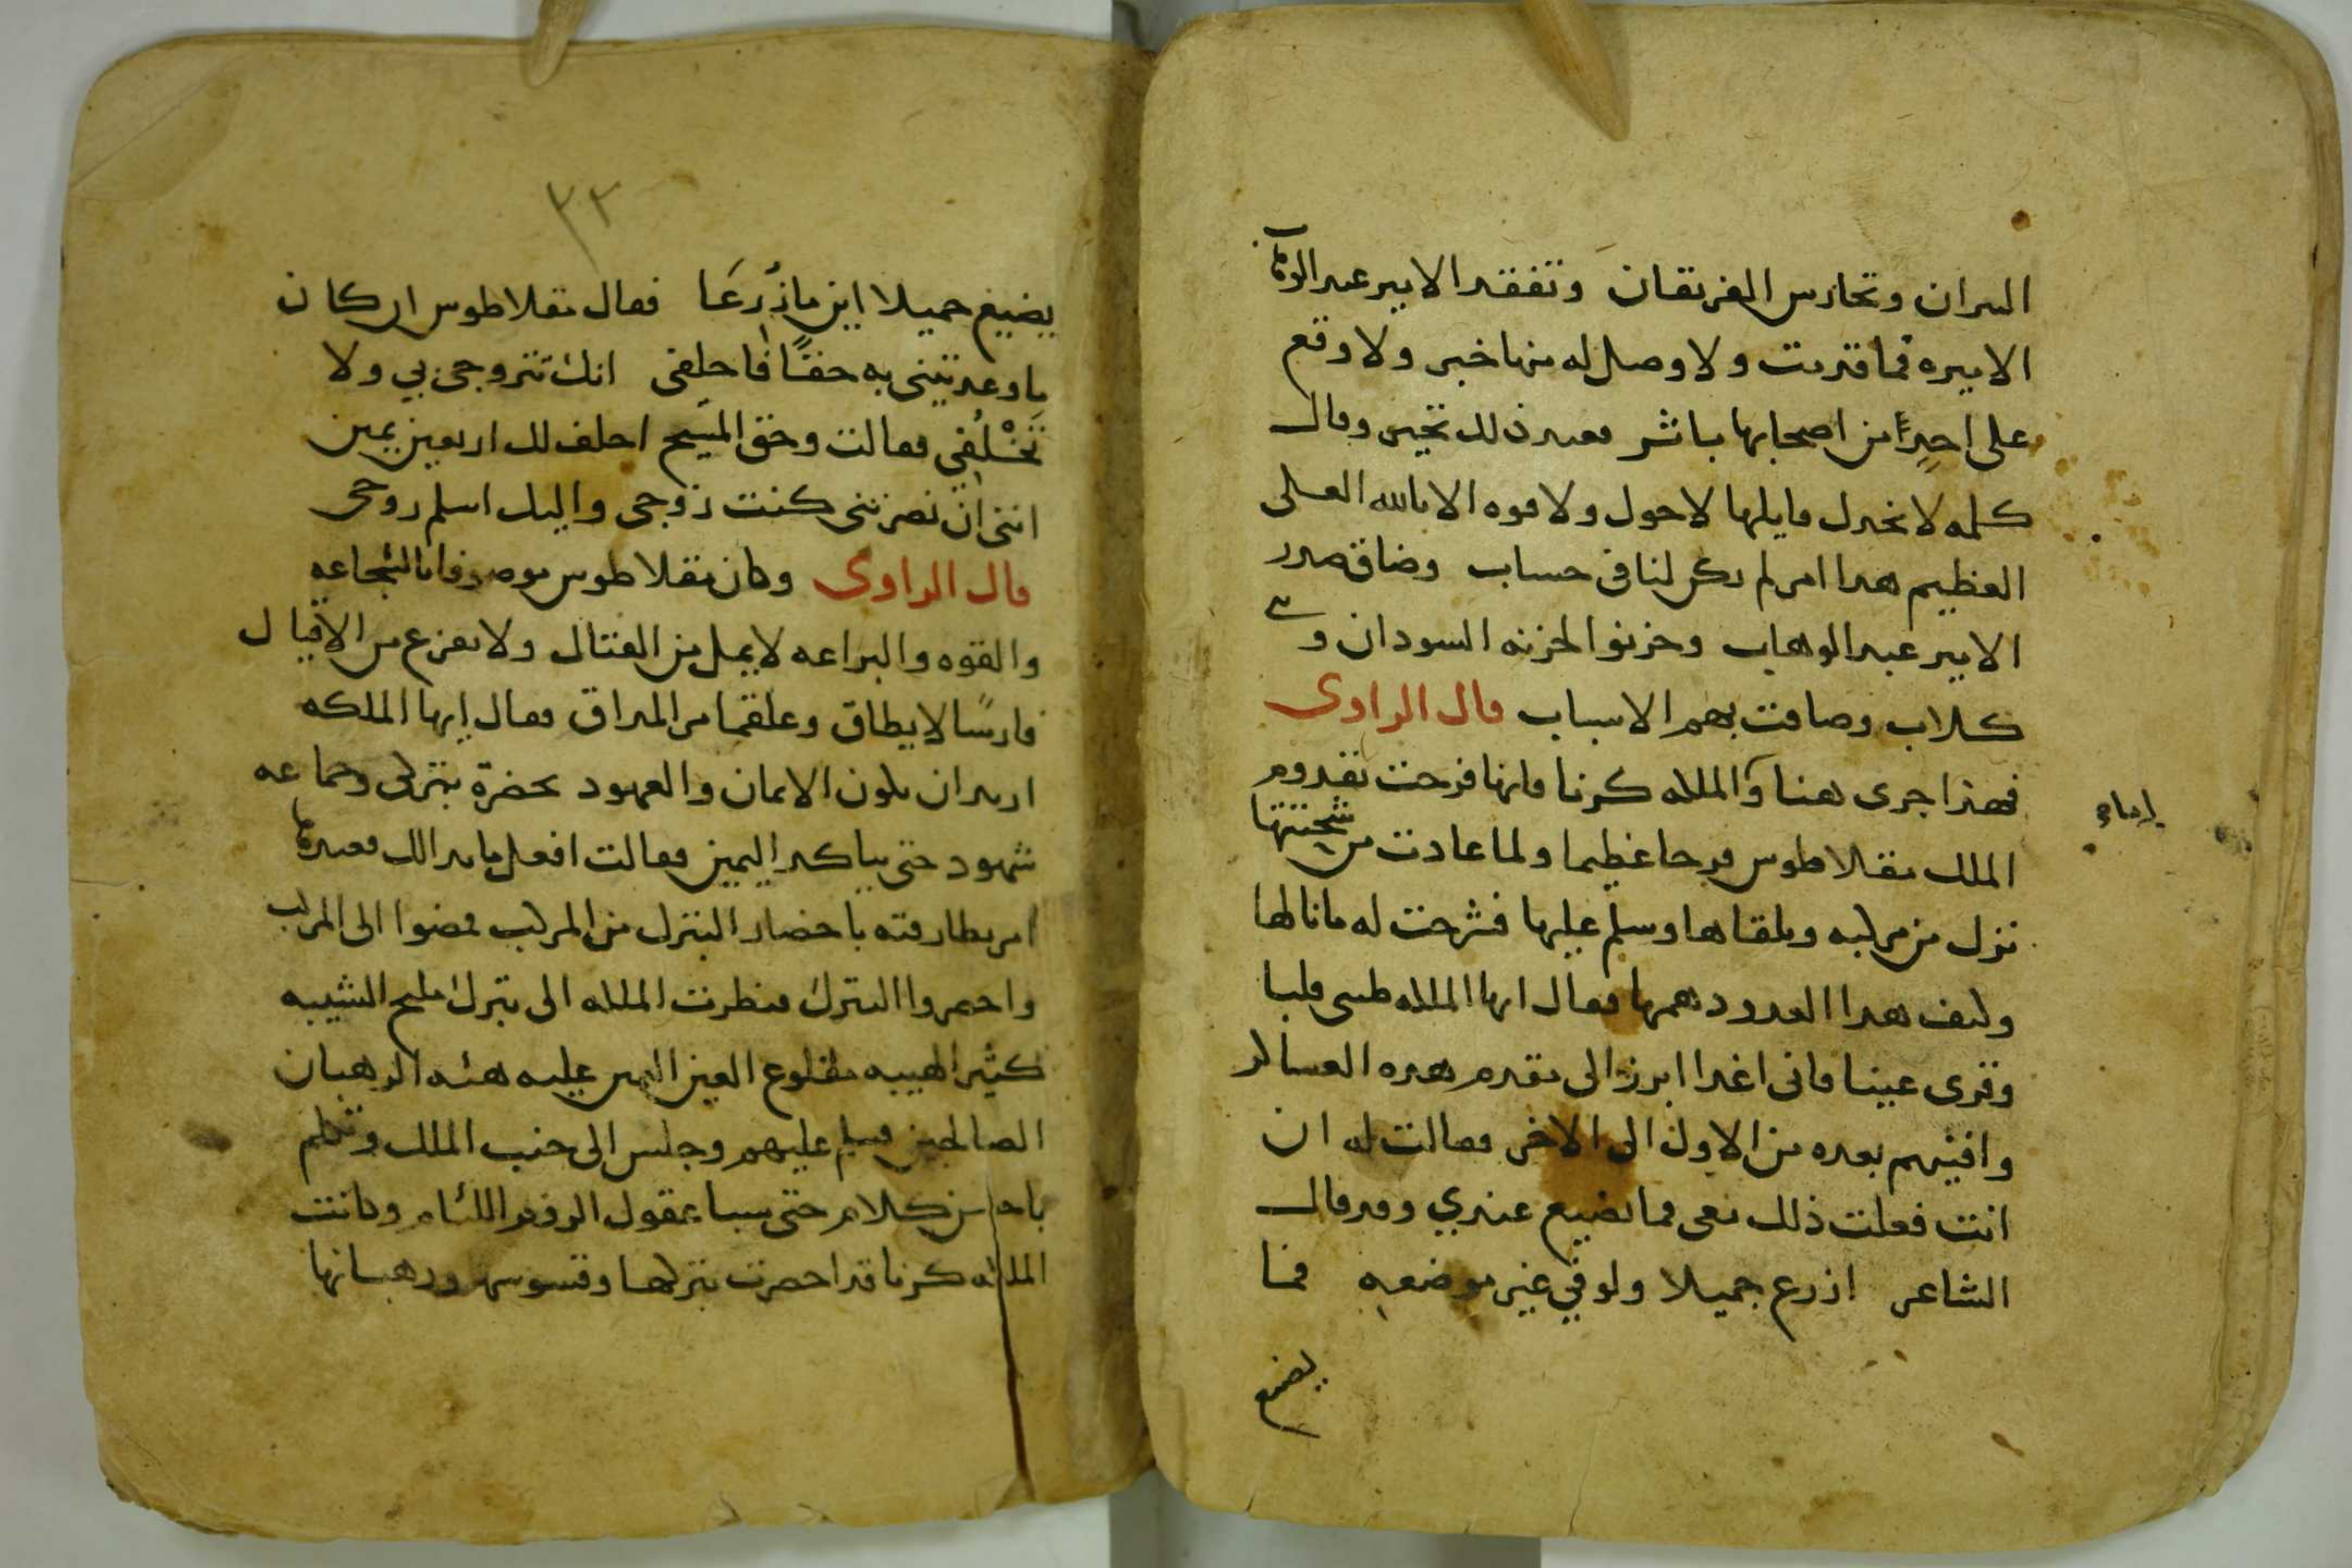 النيران وتحارس الفريقان وتفقد الامير عبد الوهاب
الاميره فما قدمت ولا وصل له منها خبر ولا وقع
على احدٍ من اصحابها باثر فعند ذلك تحير وقال
كلمه لا يخدل قايلها لا حول ولا قوه الا بالله العلى
العظيم هدا امر لم يكن لنا فى حساب وضاق صدر
الامير عبد الوهاب وحزنوا لحزنه السودان و
كلاب وضاقت بهم الاسباب قال الراوى
فهذا جرى هنا والملكه كرنا فانها فرحت بقدوم
الملك بقلاطوس فرحا عظيما ولما عادت من
نزل من مركبه وتلقاها وسلم عليها فشرحت له ما نالها
وكيف هدا العدو دهمها فقال ايها الملكه طيبى قلبا
وقرى عينا فانى اغدا ابرز الى مقدم هده العساكر
وافنيهم بعده من الاول الى الاخر فقالت له ان
انت فعلت ذلك نعى فما يضيع عندي وقد قال
الشاعر ازرع جميلا ولو في غير موضعه فما
يضيع
٣٣
يضيع جميلا اين ما زُرعَا فقال بقلاطوس ان كان
ما وعدتينى به حقًا فاحلفى انك تتزوجى بي ولا
تَخْلُفِي فقالت وحق المسيح احلف لك اربعين يمين
اننى ان نصرتنى كنت زوجى واليك اسلم روحى
قال الراوى وكان بقلاطوس موصوفا بالشجاعه
والقوه والبراعه لا يمل من القتال ولا يفزع من الاقيال
فارسًا لا يطاق وعلقما مر المداق فقال ايها الملكه
اريد ان يكون الايمان والعهود بحضرة بتركى وجماعه
شهود حتى يتاكد اليمين فقالت افعل ما بدا لك فعندها
امر بطارقته باحضار البترك من المركب فمضوا الى المركب
واحضروا البترك فنظرت الملكه الى بترك مليح الشيبه
كثير الهيبه مقلوع العين اليمين عليه هيئه الرهبان
الصالحين فسلم عليهم وجلس الى جنب الملك وتكلم
باحسن كلام حتى سبا عقول الروم اللئام وكانت
الملكه كرنا قد احضرت بتركها وقسوسها ورهبانها